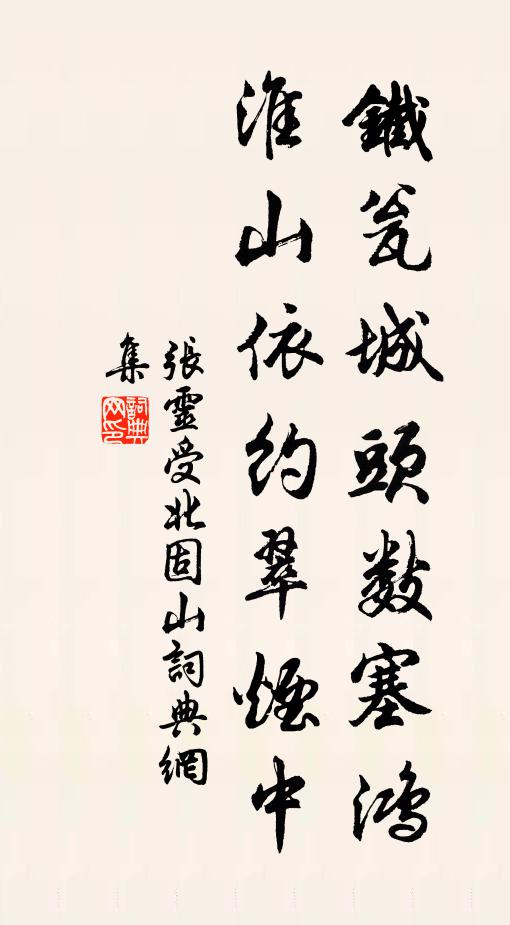 鐵瓮城頭数塞鴻
淮山依約翠煙中
張靈受北固山詞典網
集
詞典
网印